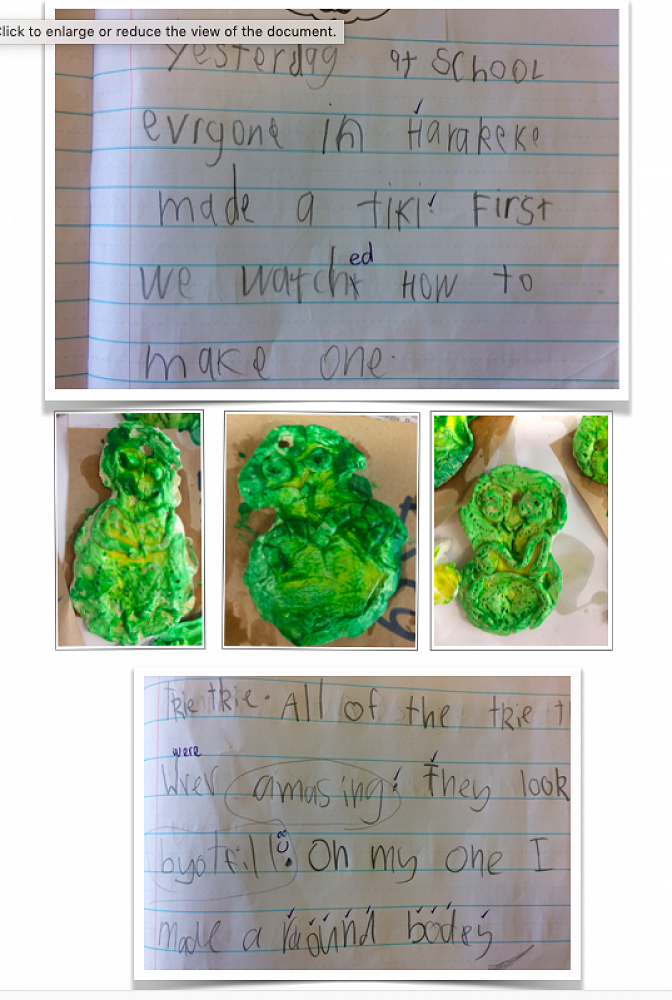 Click to enlarge or reduce the view of the document.
yesterday at SChOOL
evrgone in Harakeke
made a tiki. First
ed
we watcht HOW to
make one.
Trie trie. All of the trie t
were
Wrer amasing. They look
byotfill. On my one I
made a raound bodey